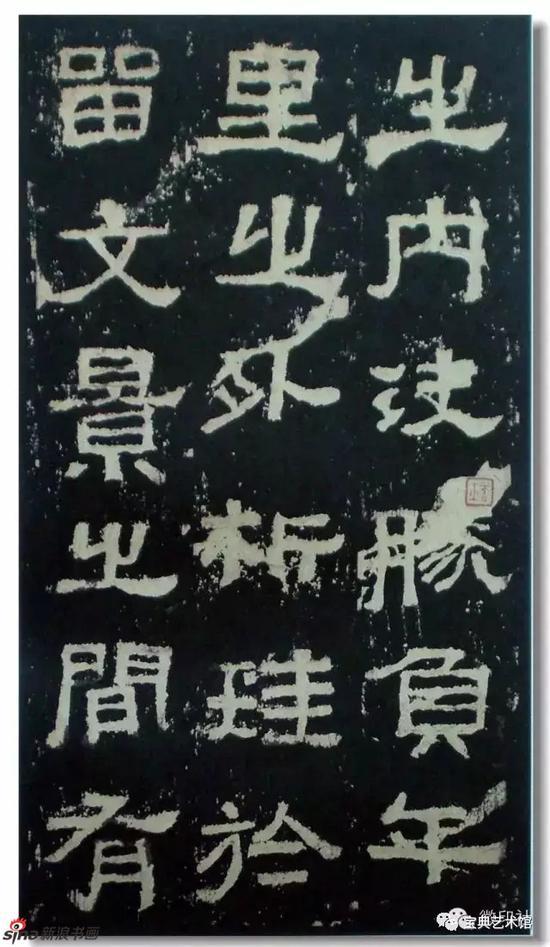 之内決勝負千
里之外析珪於
留文景之間有
sina 新浪书画
宝典艺术馆